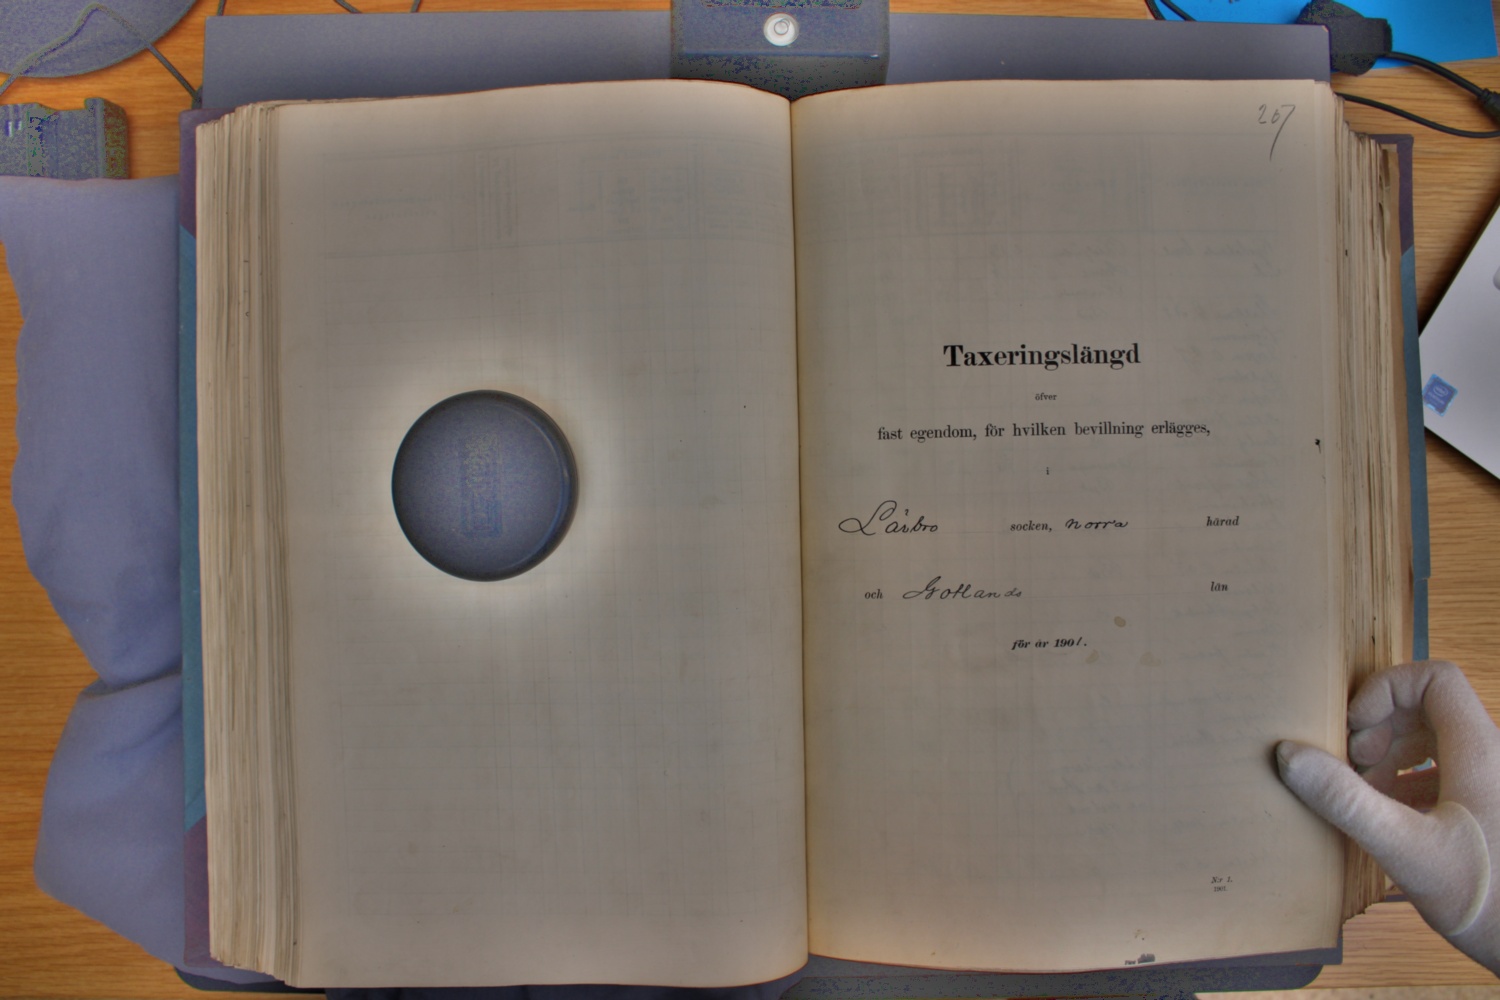 207
Taxeringslängd
öfver
fast egendom, för hvilken bevillning erlägges,
i
Lärbro socken, norra härad
och Gotlands län
för år 1901.
Nr 1.
1901.